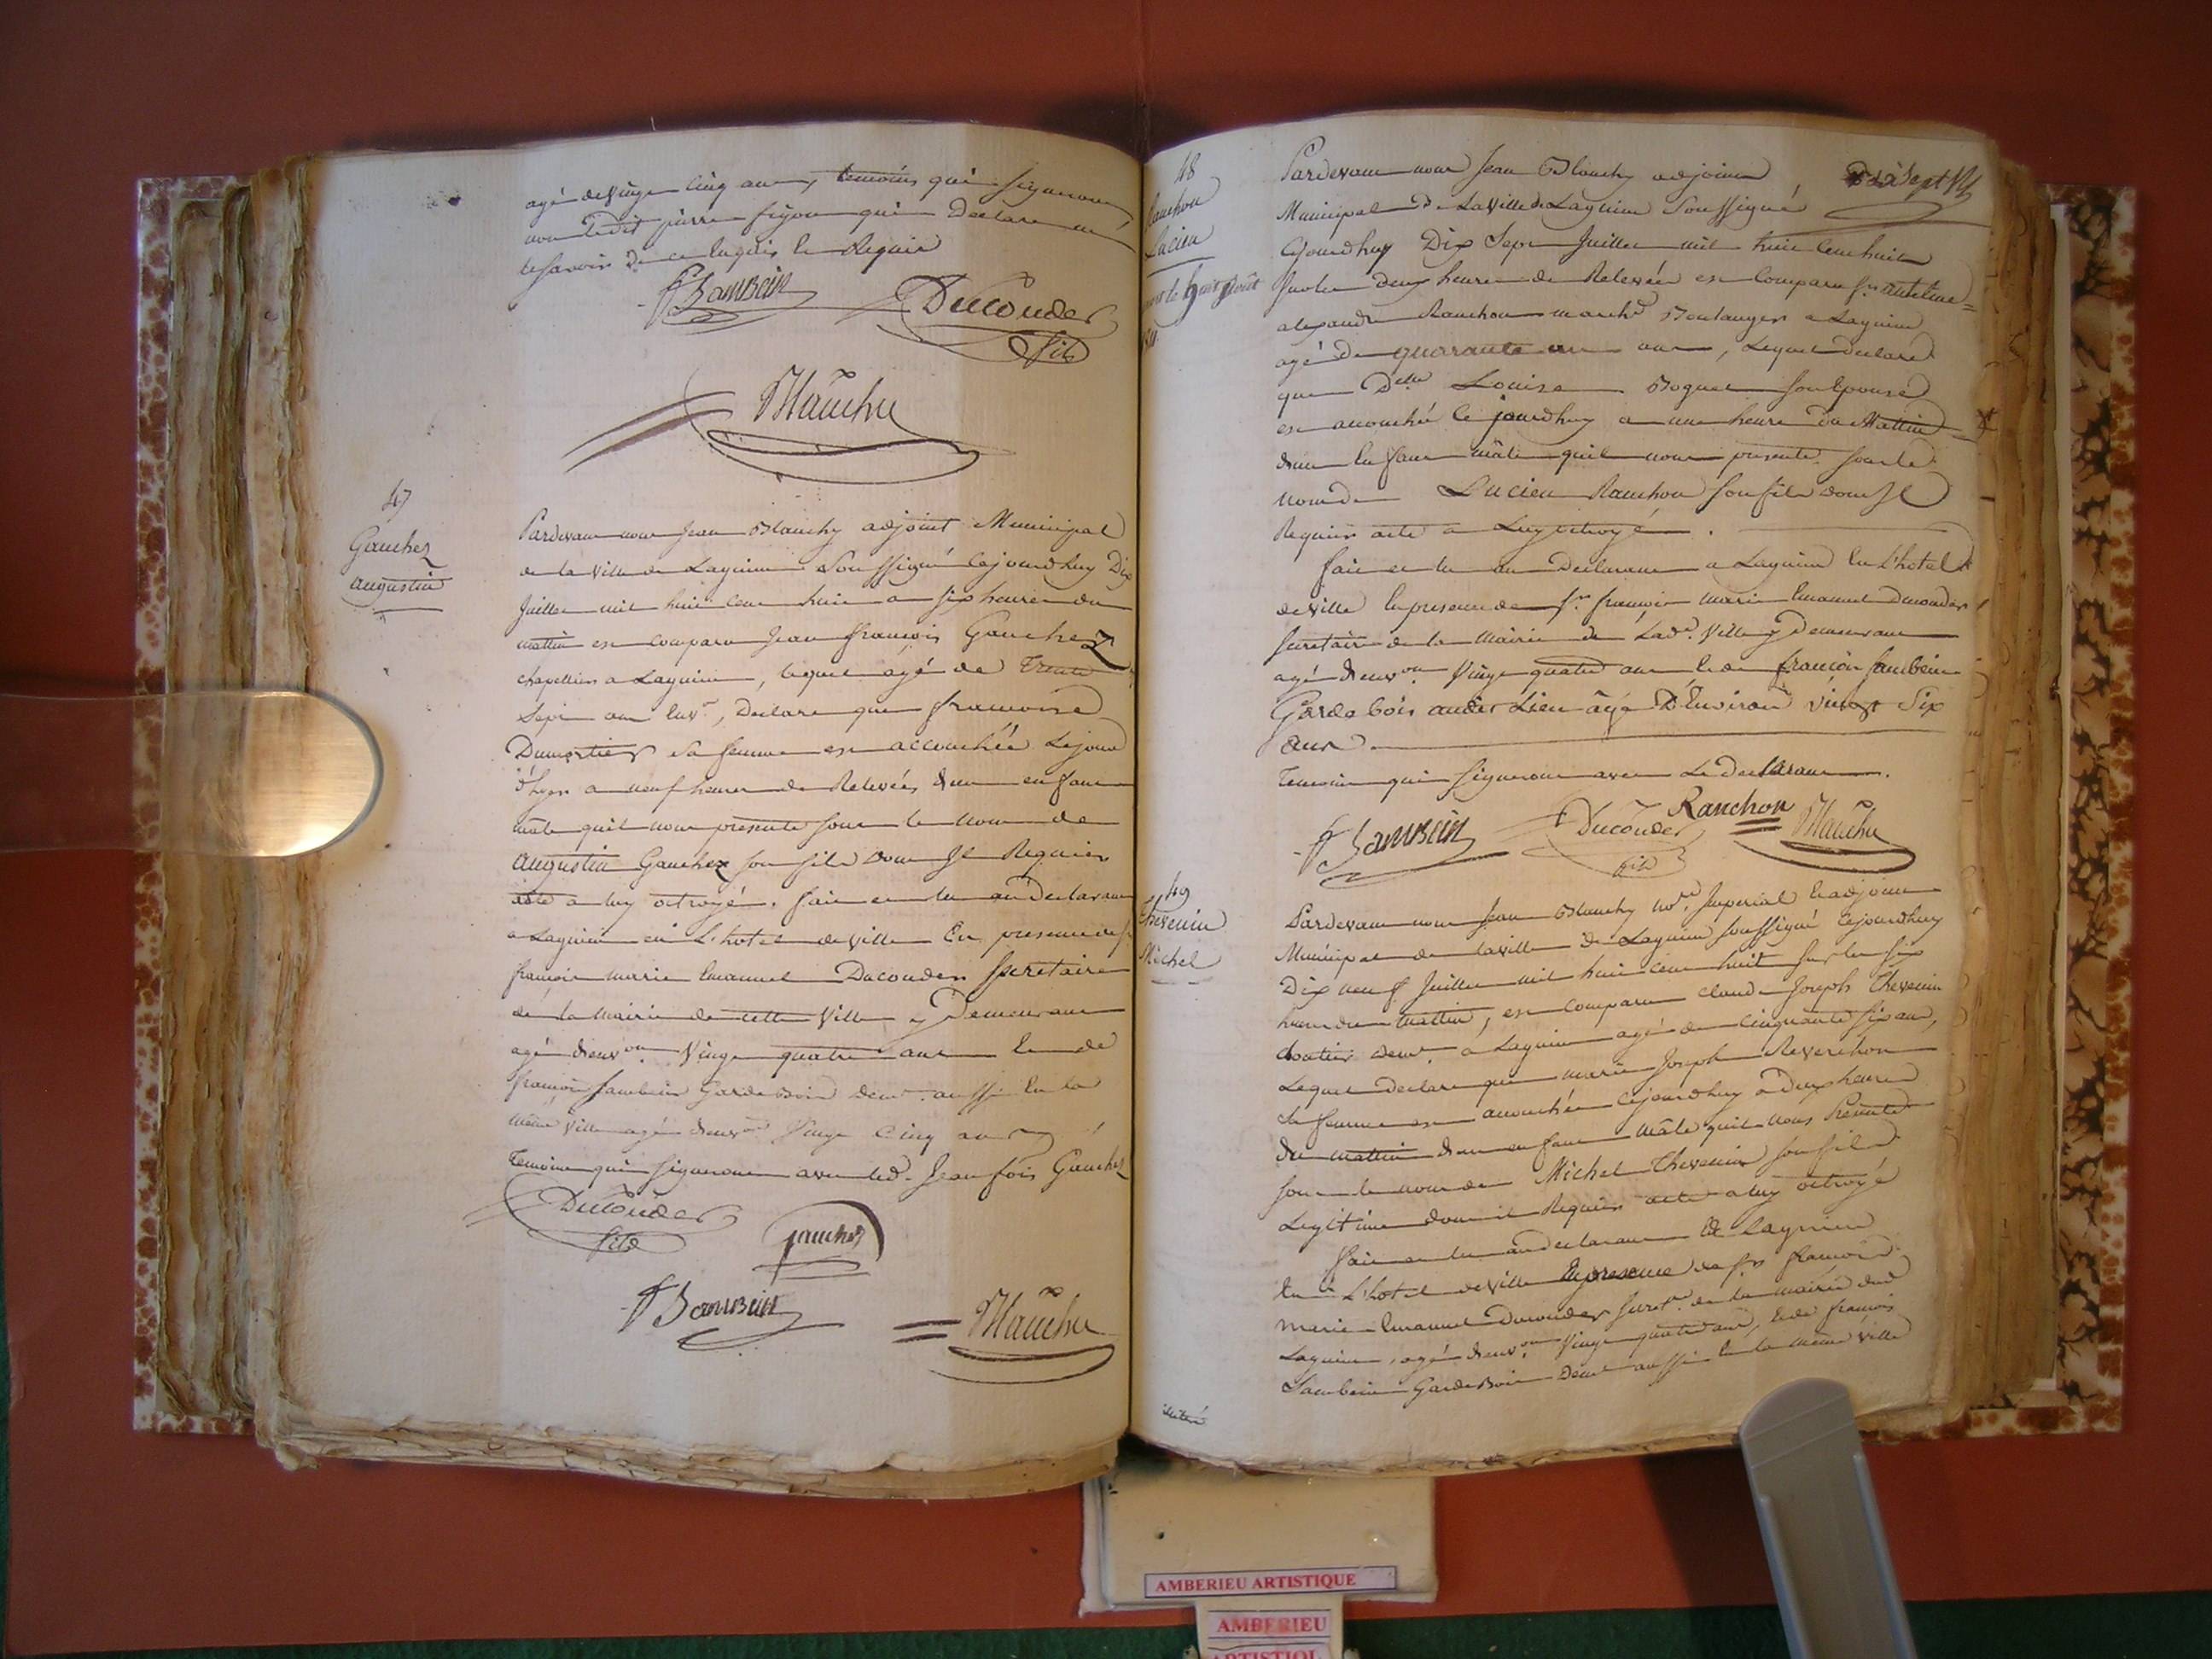 agé de vingt cinq ans, temoins qui signeront
non ledit pierre fijon qui Declare ne
le savoir de ce enquis et Requis
fSambein
Ducouder
fils
Blanchy
47
Gauchez
augustin
Pardevant nous Jean Blanchy adjoint Municipal
de la Ville de Lagnieu Soussigné Cejourdhuy Dix
Juillet mil huit cent huit a six heures du
mattin est comparu Jean françois Gauchez
chapellier a Lagnieu, lequel agé de Trente
Sept ans env.on, Declare que francoise
Dumortier sa femme est accouchée Lejour
d'hyer a neuf heures de Relevée dun enfant
mâle quil nous présente sous le nom de
augustin Gauchez son fils dont Il Requier
acte a luy octroyé. fait et lu au Declarant
a Lagnieu en L'hotel deville En presence de sr
françois marie Emanuel Ducouder Secretaire
de la Mairie de cette Ville y Demeurant
agé denvon Vingt quatre ans et de
françois Sambein Garde Bois demt aussi En la
même Ville agé denvon Vingt Cinq ans
Temoins qui signeront avec led. Jean fois Gauchez
Ducouder
fils
gauchez
fSambein
Blanchy
48
Ranchon
Lucien
mort le huit Aôut
Pardevant nous Jean Blanchy adjoint
Municipal De La Ville de Lagnieu Soussigné
Cejourdhuy Dix Sept Juillet mil huit Cent huit
Sur les deux heures de Relevée est Comparu sr antelme=
alexandre Ranchon marchd Boulanger a Lagnieu
agé de quarante un ans, Lequel declare
que Delle Louise Boguet son Epouse
est accouchée Ce jourdhuy a une heure du Mattin
dun Enfant mâle quil nous presente sous le
nom de Lucien Ranchon son fils dont Il
Requier acte a Luy octroyé.
fait et lu au Declarant a Lagnieu En L'hotel
deville En presence de sr. françois marie Emanuel Ducouder
Secretaire de la Mairie de Lade. Ville y Demeurant
agé denvon Vingt quatre ans et de françois Sambein
Garde bois audit Lieu âgé D'Environ vingt Six
ans
Temoins qui signeront avec Le Declarant.
fSambein
Ducouder
fils
Ranchon
Blanchy
49
Thevenin
Michel
Pardevant nous Jean Blanchy nore. Imperial et adjoint
Municipal de la ville de Lagnieu soussigné Cejourdhuy
Dix neuf Juillet mil huit cent huit sur les six
heures du mattin, est comparu claude Joseph Thevenin
demt. a Lagnieu agé de cinquante six ans,
Lequel declare que marie Joseph Reverchon
sa femme est accouchée Cejourdhuy a Deux heures
du mattin dun enfant mâle quil nous Présente
sous le nom de Michel Thevenin son fils
Legitime dont il Requier acte a luy octroyé
fait et lu au declarant a Lagnieu
En L'hotel deville En presence de sr françois
marie Emanuel Ducouder Secret.re de la mairie dud
Lagnieu, agé denvon Vingt quatre ans, et de françois
Sambein Garde Bois demt aussi En la même Ville
AMBERIEU ARTISTIQUE
AMBERIEU
ARTISTIQ